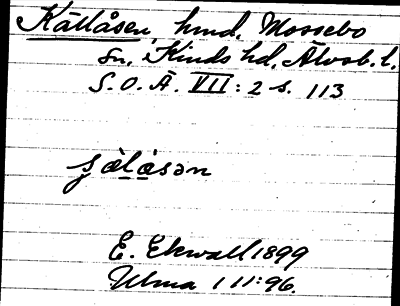 Källåsen, hmd, Mossebo
sn, Kinds hd, Älvsb. l.
S.O.Ä. VII: 2 s. 113
ʃàlåsən
E. Ekwall 1899
Ulma 111:96.